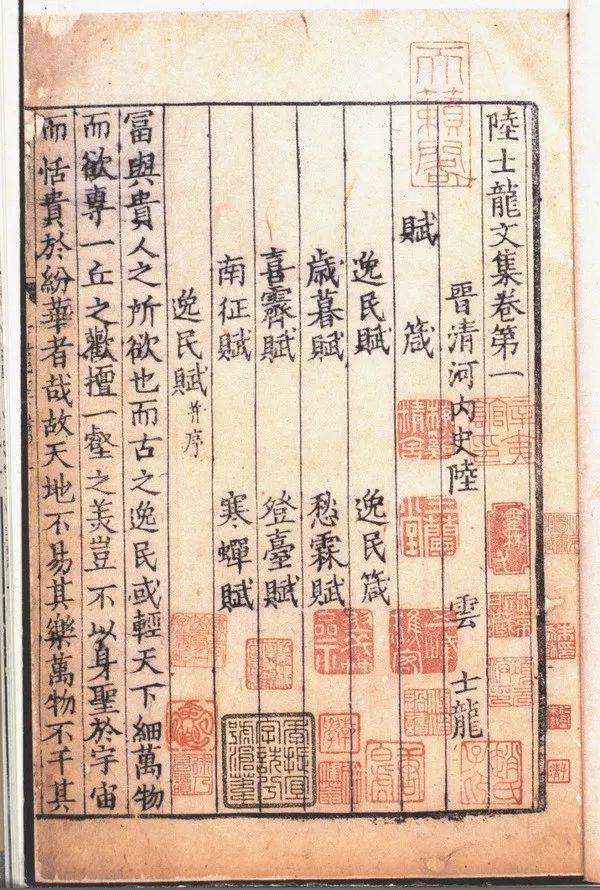 天籟閣
陸士龍文集卷第一
晉清河内史陸 雲 士龍
賦 箴
逸民賦 逸民箴
歲暮賦 愁霖賦
喜霽賦 登臺賦
南征賦 寒蟬賦
逸民賦 并序
冨與貴人之所欲也而古之逸民或輕天下細萬物
而欲專一丘之歡擅一壑之美豈不以身聖於宇宙
而恬貴於紛華者哉故天地不易其樂萬物不干其